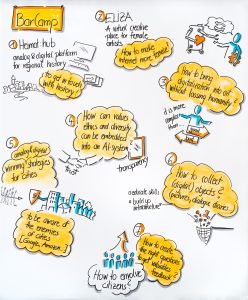 BarCamp
1 Hemat Hub
analog & digital platform
for regional history
to get in touch
with history
2 ELIZA
A virtual creative
place for female
artists
How to make
internet more female
3 How to bring
digitalization into art
without loosing humanity
it is more
complex than
4 How can values
ethics and diversity
can be embedded
into an AI-system
trust
transparency
5 analog & digital
winning strategies
for cities
to be aware of
the enemies
of cities
Google, Amazon
6 How to collect
(digital) objects &
pictures, dialogue, stories
educate skills
build up
infrastructure
7 How to create
the right questions
to get valuables
feedback
How to envolve
citizens?